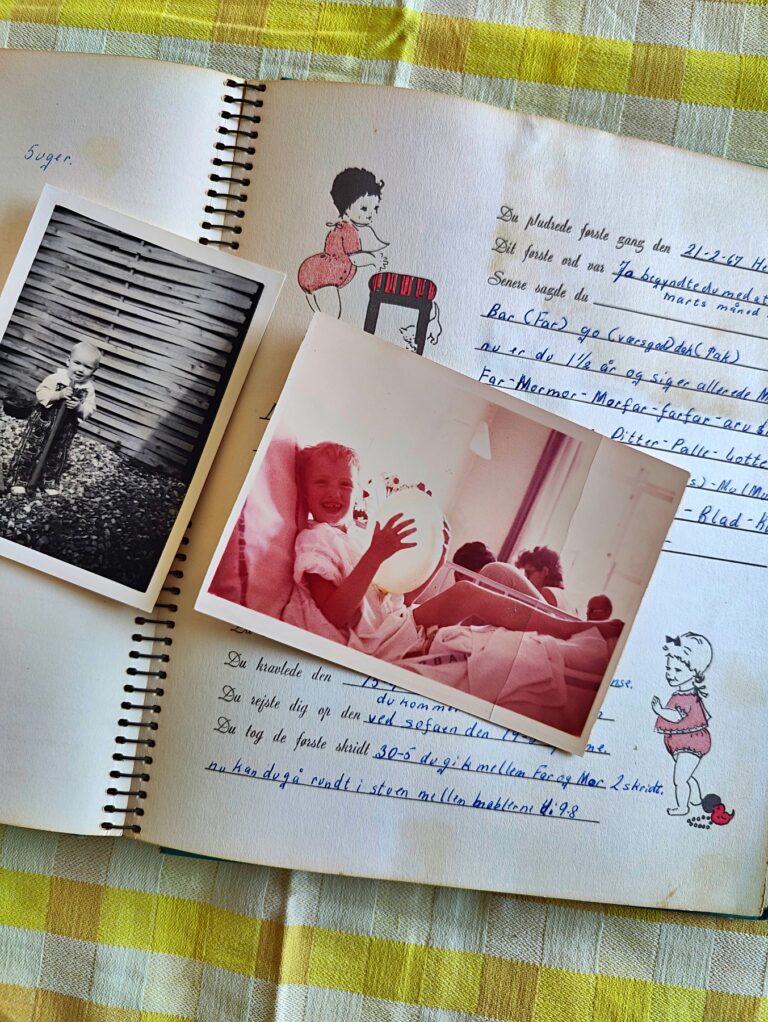 5 uger.
Du pludrede første gang den 21-2-67
Dit første ord var Ja begyndte du med at
marts måned
Senere sagde du
Bar (Far) go (værsgod) dah (tak)
nu er du 1½ år og siger allerede
Far-Mormor-Morfar-farfar-
Ditter-Palle-Lotte
Du kravlede den
du kommer
Du rejste dig op den ved sofaen den
Du tog de første skridt 30-5 du gik mellem Far og Mor 2 skridt.
nu kan du gå rundt i stuen mellem møblerne d. 9-8